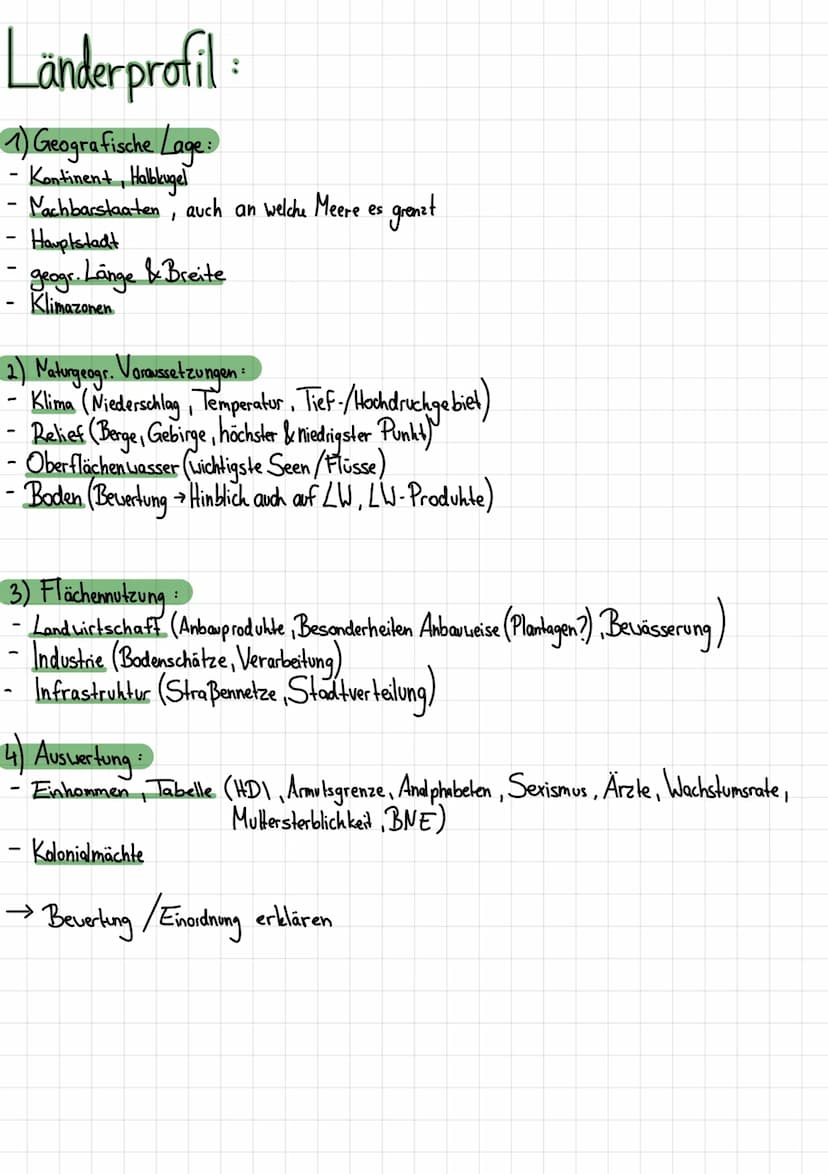 Länderprofil:
1) Geografische Lage:
- Kontinent, Halbkugel
- Nachbarstaaten, auch an welche Meere es grenzt
- Hauptstadt
- geogr. Länge & Breite
- Klimazonen
2) Naturgeogr. Voraussetzungen:
- Klima (Niederschlag, Temperatur, Tief-/Hochdruckgebiet)
- Relief (Berge, Gebirge, höchster & niedrigster Punkt)
- Oberflächenwasser (wichtigste Seen/Flüsse)
- Boden (Bewertung → Hinblick auch auf LW, LW-Produkte)
3) Flächennutzung:
- Landwirtschaft (Anbauprodukte, Besonderheiten Anbauweise (Plantagen?), Bewässerung)
- Industrie (Bodenschätze, Verarbeitung)
- Infrastruktur (Straßennetze, Stadtverteilung)
4) Auswertung:
- Einkommen, Tabelle (HDI, Armutsgrenze, Analphabeten, Sexismus, Ärzte, Wachstumsrate,
Müttersterblichkeit, BNE)
- Kolonialmächte
→ Bewertung/Einordnung erklären